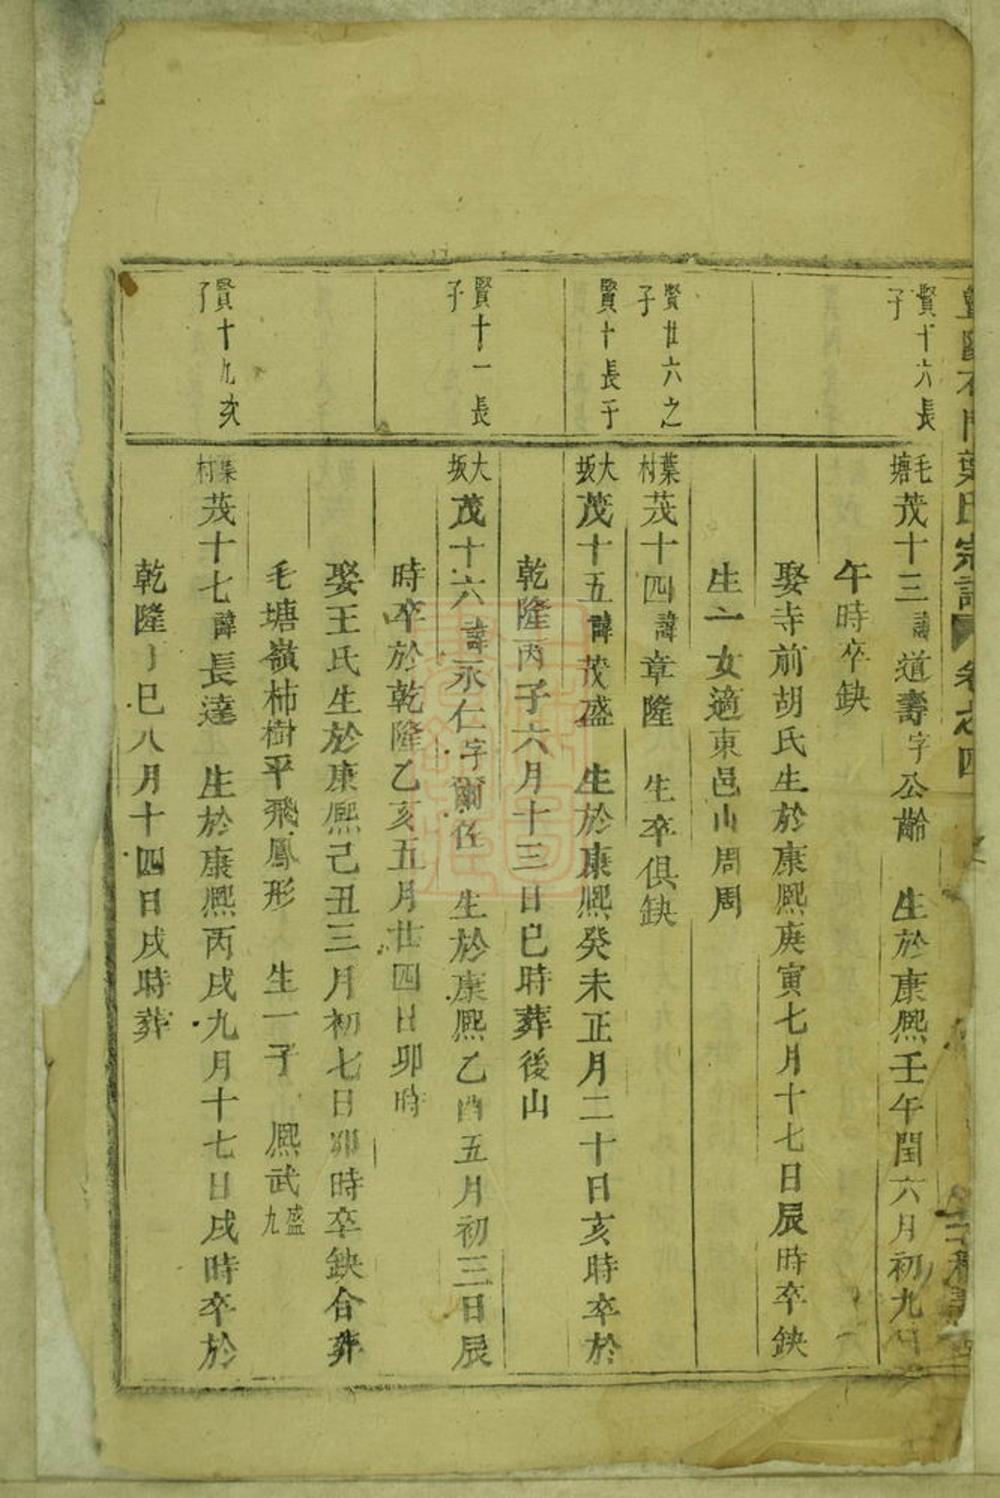 葉氏宗譜 卷之四
賢十六長子
毛塘茂十三諱道壽字公齡 生於康熙壬午閏六月初九日
午時卒缺
娶寺前胡氏生於康熙庚寅七月十七日辰時卒缺
生一女適東邑山周周
賢廿六之子
葉村茂十四諱章隆 生卒俱缺
賢十長子
大坂茂十五諱茂盛 生於康熙癸未正月二十日亥時卒於
乾隆丙子六月十三日巳時葬後山
賢十一長子
大坂茂十六諱永仁字爾佐 生於康熙乙酉五月初三日辰
時卒於乾隆乙亥五月廿四日卯時
娶王氏生於康熙己丑三月初七日卯時卒缺合葬
毛塘嶺柿樹平飛鳳形 生一子 熙武盛九
賢十九次子
葉村茂十七諱長達 生於康熙丙戌九月十七日戌時卒於
乾隆 巳八月十四日戌時葬